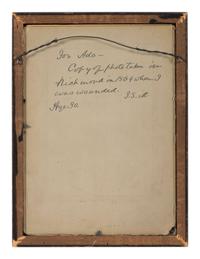 For Ada —
Copy of photo taken in
Richmond in 1864 when I
was wounded.
Age 30